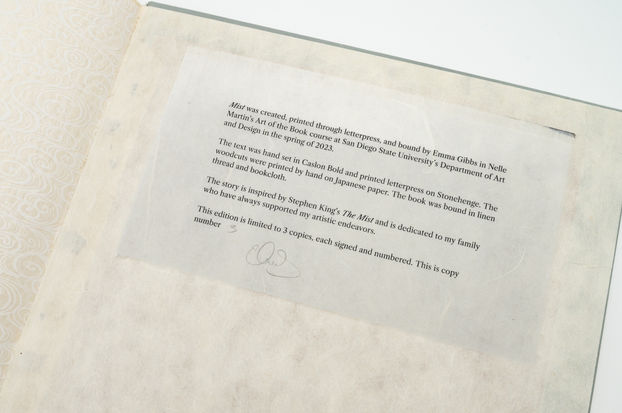 Mist was created, printed through letterpress, and bound by Emma Gibbs in Nelle
Martin's Art of the Book course at San Diego State University's Department of Art
and Design in the spring of 2023.
The text was hand set in Caslon Bold and printed letterpress on Stonehenge. The
woodcuts were printed by hand on Japanese paper. The book was bound in linen
thread and bookcloth.
The story is inspired by Stephen King's The Mist and is dedicated to my family
who have always supported my artistic endeavors.
This edition is limited to 3 copies, each signed and numbered. This is copy
number 3